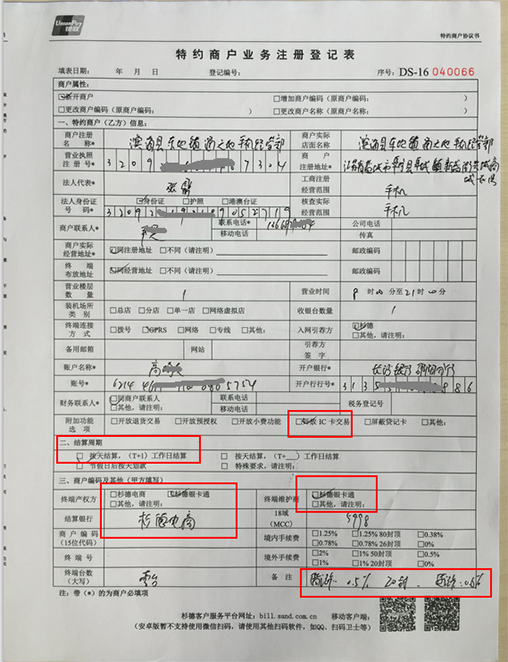 UnionPay
银联
特约商户协议书
特约商户业务注册登记表
填表日期: 年 月 日 登记编号: 序号: DS-16 040066
商户属性:
新开商户 □增加商户编码(原商户编码: )
□更改商户编码(原商户编码: ) □更改商户名称(原商户名称: )
一、特约商户(乙方)信息:
商户注册名称* 商户实际店面名称
营业执照注册号* 3209 7304 商户注册地址*
法人代表* 工商注册经营范围 手机
□身份证 □护照 □港澳台证
法人身份证号码* 核查实际经营范围 手机
商户联系人* 联系电话* 移动电话 公司电话 传真
商户实际经营地址* □同注册地址 □不同(请注明) 邮政编码
终端布放地址 □同经营地址 □不同(请注明) 邮政编码
营业楼层数量 1 营业时间 8时00分至21时00分
装机场所类别 □总店 □分店 □单一店 □网络虚拟店 收银台数量 1
终端连接方式 □拨号 □GPRS □网络 □专线 □其他: 入网引荐方 □杉德 □其他,请注明:
备用邮箱 网站 引荐方签字
账户名称* 开户银行*
账号* 6214 5754 开户行行号* 313 886
财务联系人* □同商户联系人 □其他,请注明: 移动电话 税务登记号
附加功能选项 □开放退货交易 □开放预授权 □开放小费功能 □开放 IC 卡交易 □屏蔽贷记卡 □其他:
二、结算周期
□ 按天结算,(T+1)工作日结算 □ 按天结算,(T+__)工作日结算
□ 节假日后按天划款 □ 特殊要求,请注明:
三、商户编码及其他(甲方填写)
终端产权方 □杉德电商 □杉德银卡通 □其他,请注明: 终端维护商 □杉德银卡通 □其他,请注明:
结算银行 杉德电商 18域(MCC) 5998
商户编码(15位代码) 境内手续费 □1.25% □1.25%80封顶 □0.38%
□0.78% □0.78%26封顶 □0%
终端号 境外手续费 □2% □1%50封顶 □0.5%
□1% □1%20封顶 □0%
终端台数(大写) 壹台 备注 0.5% 20封
注:带(*)的为商户必填项
杉德客户服务平台网址:bill.sand.com.cn 移动客户端:
(安卓版暂不支持使用微信扫码,请使用其他扫码软件,如QQ、扫码卫士等)